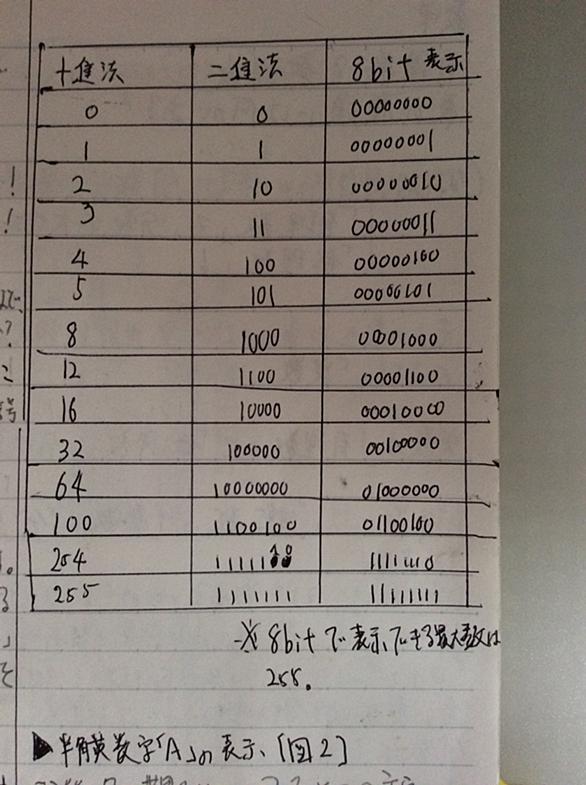 十進法 二進法 8bit 表示
0 0 00000000
1 1 00000001
2 10 00000010
3 11 00000011
4 100 00000100
5 101 00000101
8 1000 00001000
12 1100 00001100
16 10000 00010000
32 100000 00100000
64 10000000 01000000
100 1100100 01100100
254 11111110 11111110
255 11111111 11111111
※ 8bitで表示できる最大数は
255.
▶半角英数字「A」の表示、[図2]